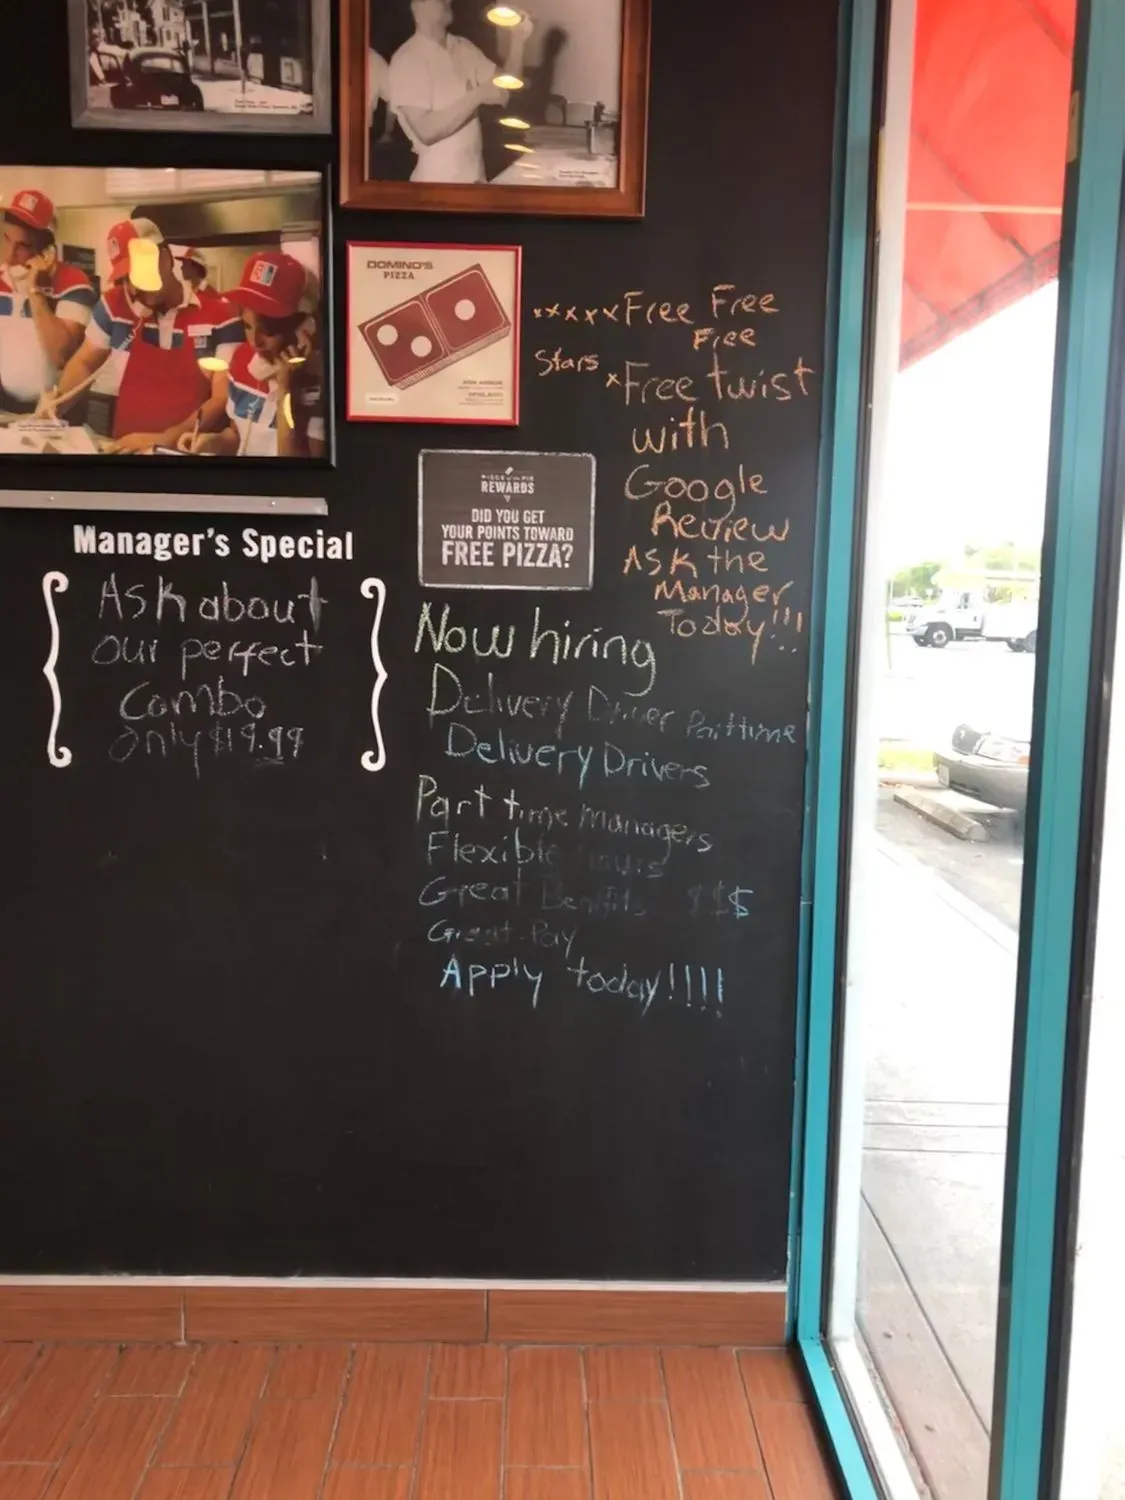 DOMINO'S
PIZZA
xxxxx Free Free
Free
Stars
x Free twist
with
Google
Review
Ask the
Manager
Today!!!
REWARDS
DID YOU GET
YOUR POINTS TOWARD
FREE PIZZA?
Manager's Special
Ask about
our perfect
Combo
only $19.99
Now hiring
Delivery Driver Parttime
Delivery Drivers
Part time managers
Flexible hours
Great Benefits $$$
Great Pay
Apply today!!!!